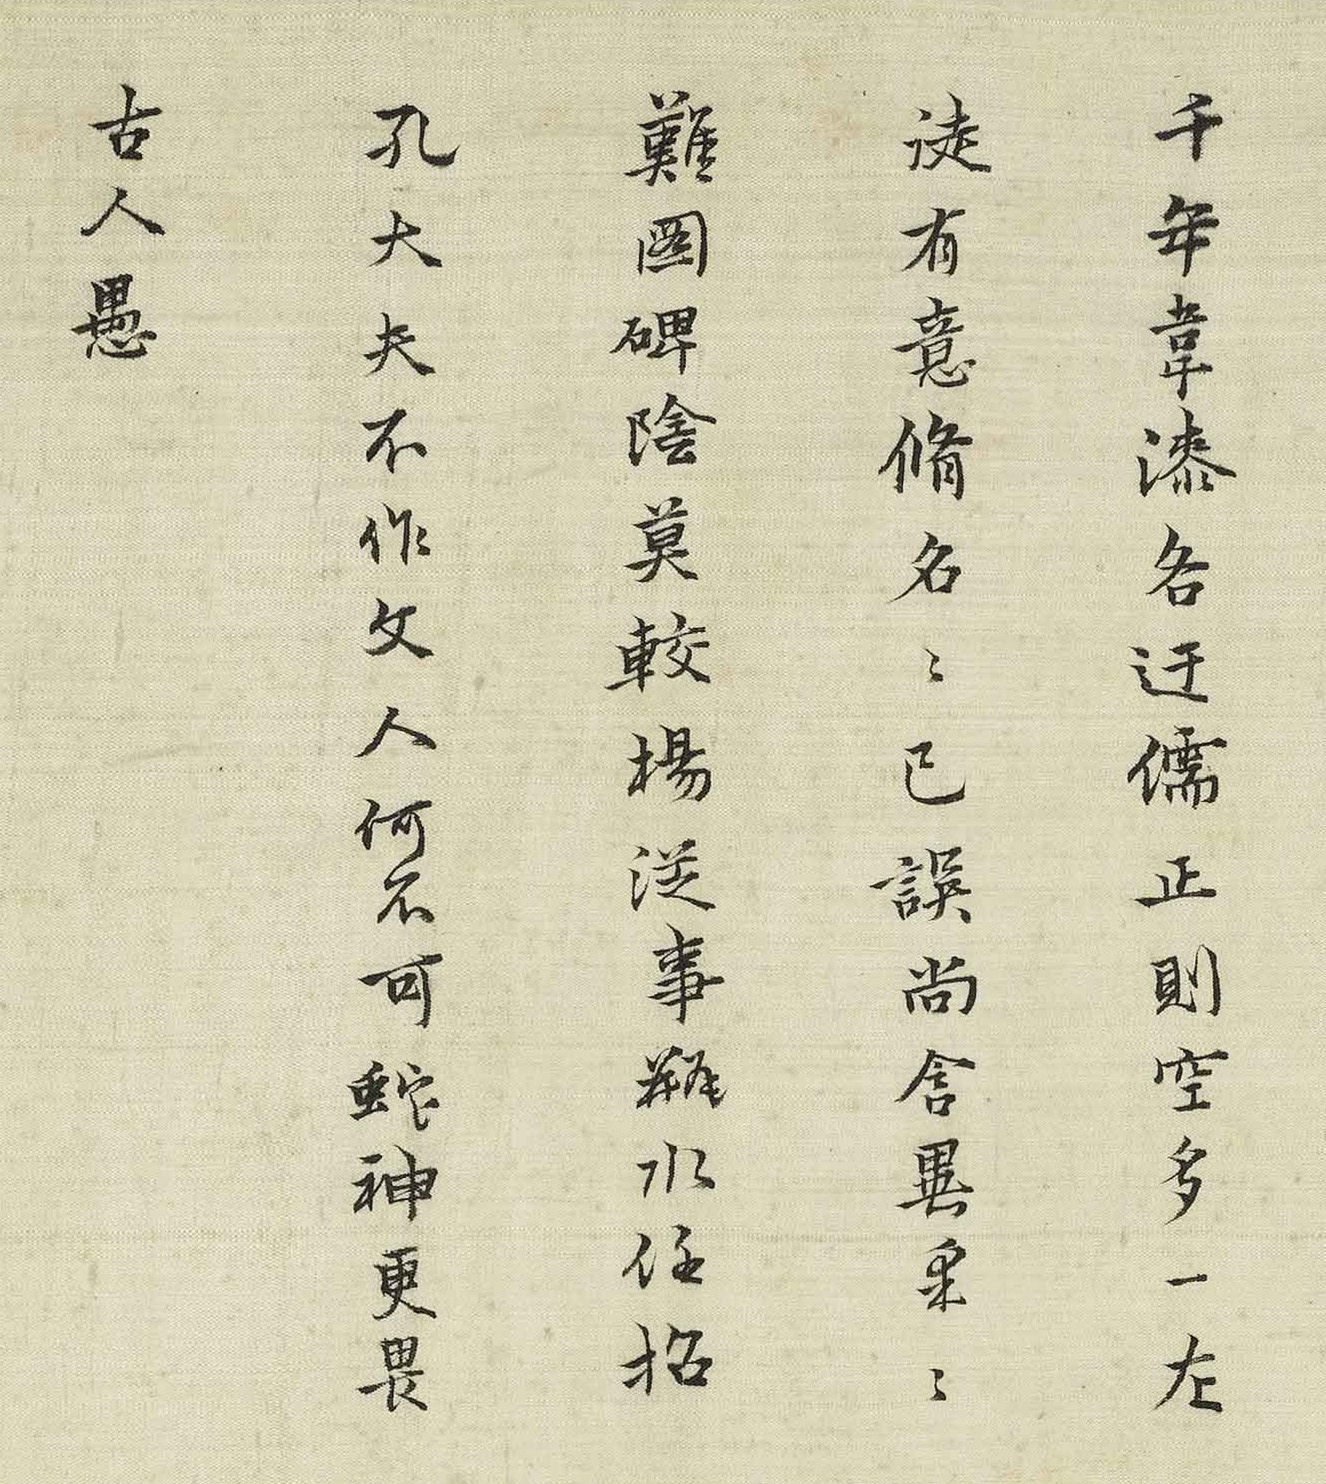 千年韋漆各迂儒正則空多一左
徒有意脩名〻已誤尚含異采〻
難圖碑陰莫較楊從事瓶水任招
孔大夫不作文人何不可蛇神更畏
古人愚